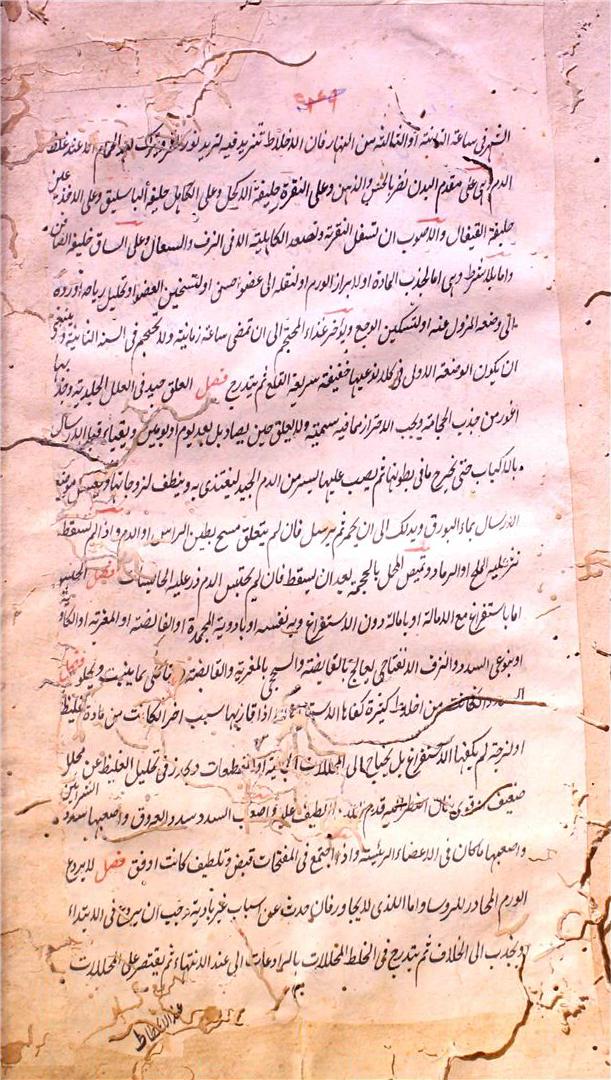 الشهر فى ساعة الثانية او الثالثة من النهار فان الاخلاط تتزيد فيه لتزيد نور القمر ويترك بعد الحمام الا عند غلظ
الدم وهى على مقدم البدن تضر بالحس والذهن وعلى النقرة خليفة الاكحل وعلى الكاهل خليفة الباسليق وعلى الاخدعين
خليفة القيفال والاصوب ان تسفل النقرية وتصعد الكاهلية الا فى النزف والسعال وعلى الساق خليفة الصافن
واما بلا شرط وهى اما لجذب المادة او لابراز الورم او لنقله الى عضو اخس او لتسخين العضو او تحليل رياحه او رده
الى وضعه المزول عنه او لتسكين الوجع ويؤخر غذاء المحتجم الى ان تمضى ساعة زمانية ولا يحتجم فى السنة الثانية وينبغى
ان يكون الوضعة الاولى فى كل منها خفيفة سريعة القلع ثم يتدرج فصل العلق جيد فى العلل الجلدية وجذبها
اغور من جذب الحجامة ويجب الاحتراز مما فيه سمية ولا يعلق حين يصاد بل بعد يوم او يومين ويقيأ قبل الارسال
بالاكباب حتى يخرج ما فى بطونها ثم يصب عليها يسير من الدم الجيد لتغتذى به وينظف لزوجاتها ويغسل موضع
الارسال بماء البورق ويدلك الى ان يحمر ثم يرسل فان لم يتعلق مسح بطين الراس او الدم واذا لم يسقط
نثر عليه الملح او الرماد ويمص المحل بالمحجمة بعد ان يسقط فان لم يحتبس الدم ذر عليه الحابسات فصل الحبس
اما باستفراغ مع الامالة او بامالة دون الاستفراغ وبه نفسه او بادوية المجمدة او القابضة او المغرية او الكاوية
او بنوعى السدد والنزف الانفتاحى يعالج بالقابضة والسحجى بالمغرية والقابضة و بما ينبت ويجلو
السدد الكائنة من اخلاط كثيرة كفاها اذا قارنها سبب اخر الكائنة من مادة غليظة
او لزجة لم يكفها الاستفراغ بل يحتاج الى المحللات والمقطعات فى تحليل الغليظ عن محلل
ضعيف واصعب السدد سدد العروق واصعبها سدد الشرايين
واصعبها ما كان فى الاعضاء الرئيسة واذا اجتمع فى المفتحات قبض وتلطيف كانت اوفق فصل لا يروع
الورم المجاور للروساء واما اللذى لا يجاور فان حدث عن اسباب غير بادية وجب ان يروع فى الابتداء
او يجذب الى الخلاف ثم يتدرج فى الخلط المحللات بالرادعات الى عند الانتهاء ثم يقتصر على المحللات
عند الانحطاط